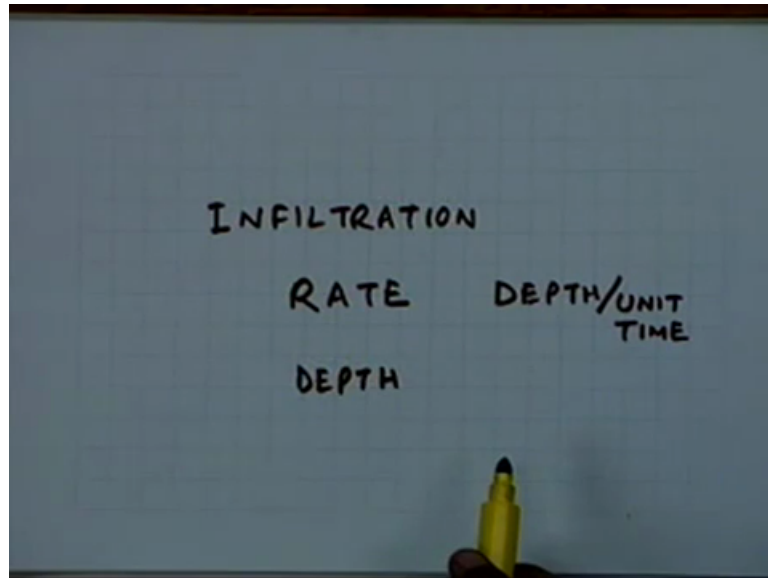 INFILTRATION
RATE DEPTH/UNIT
TIME
DEPTH